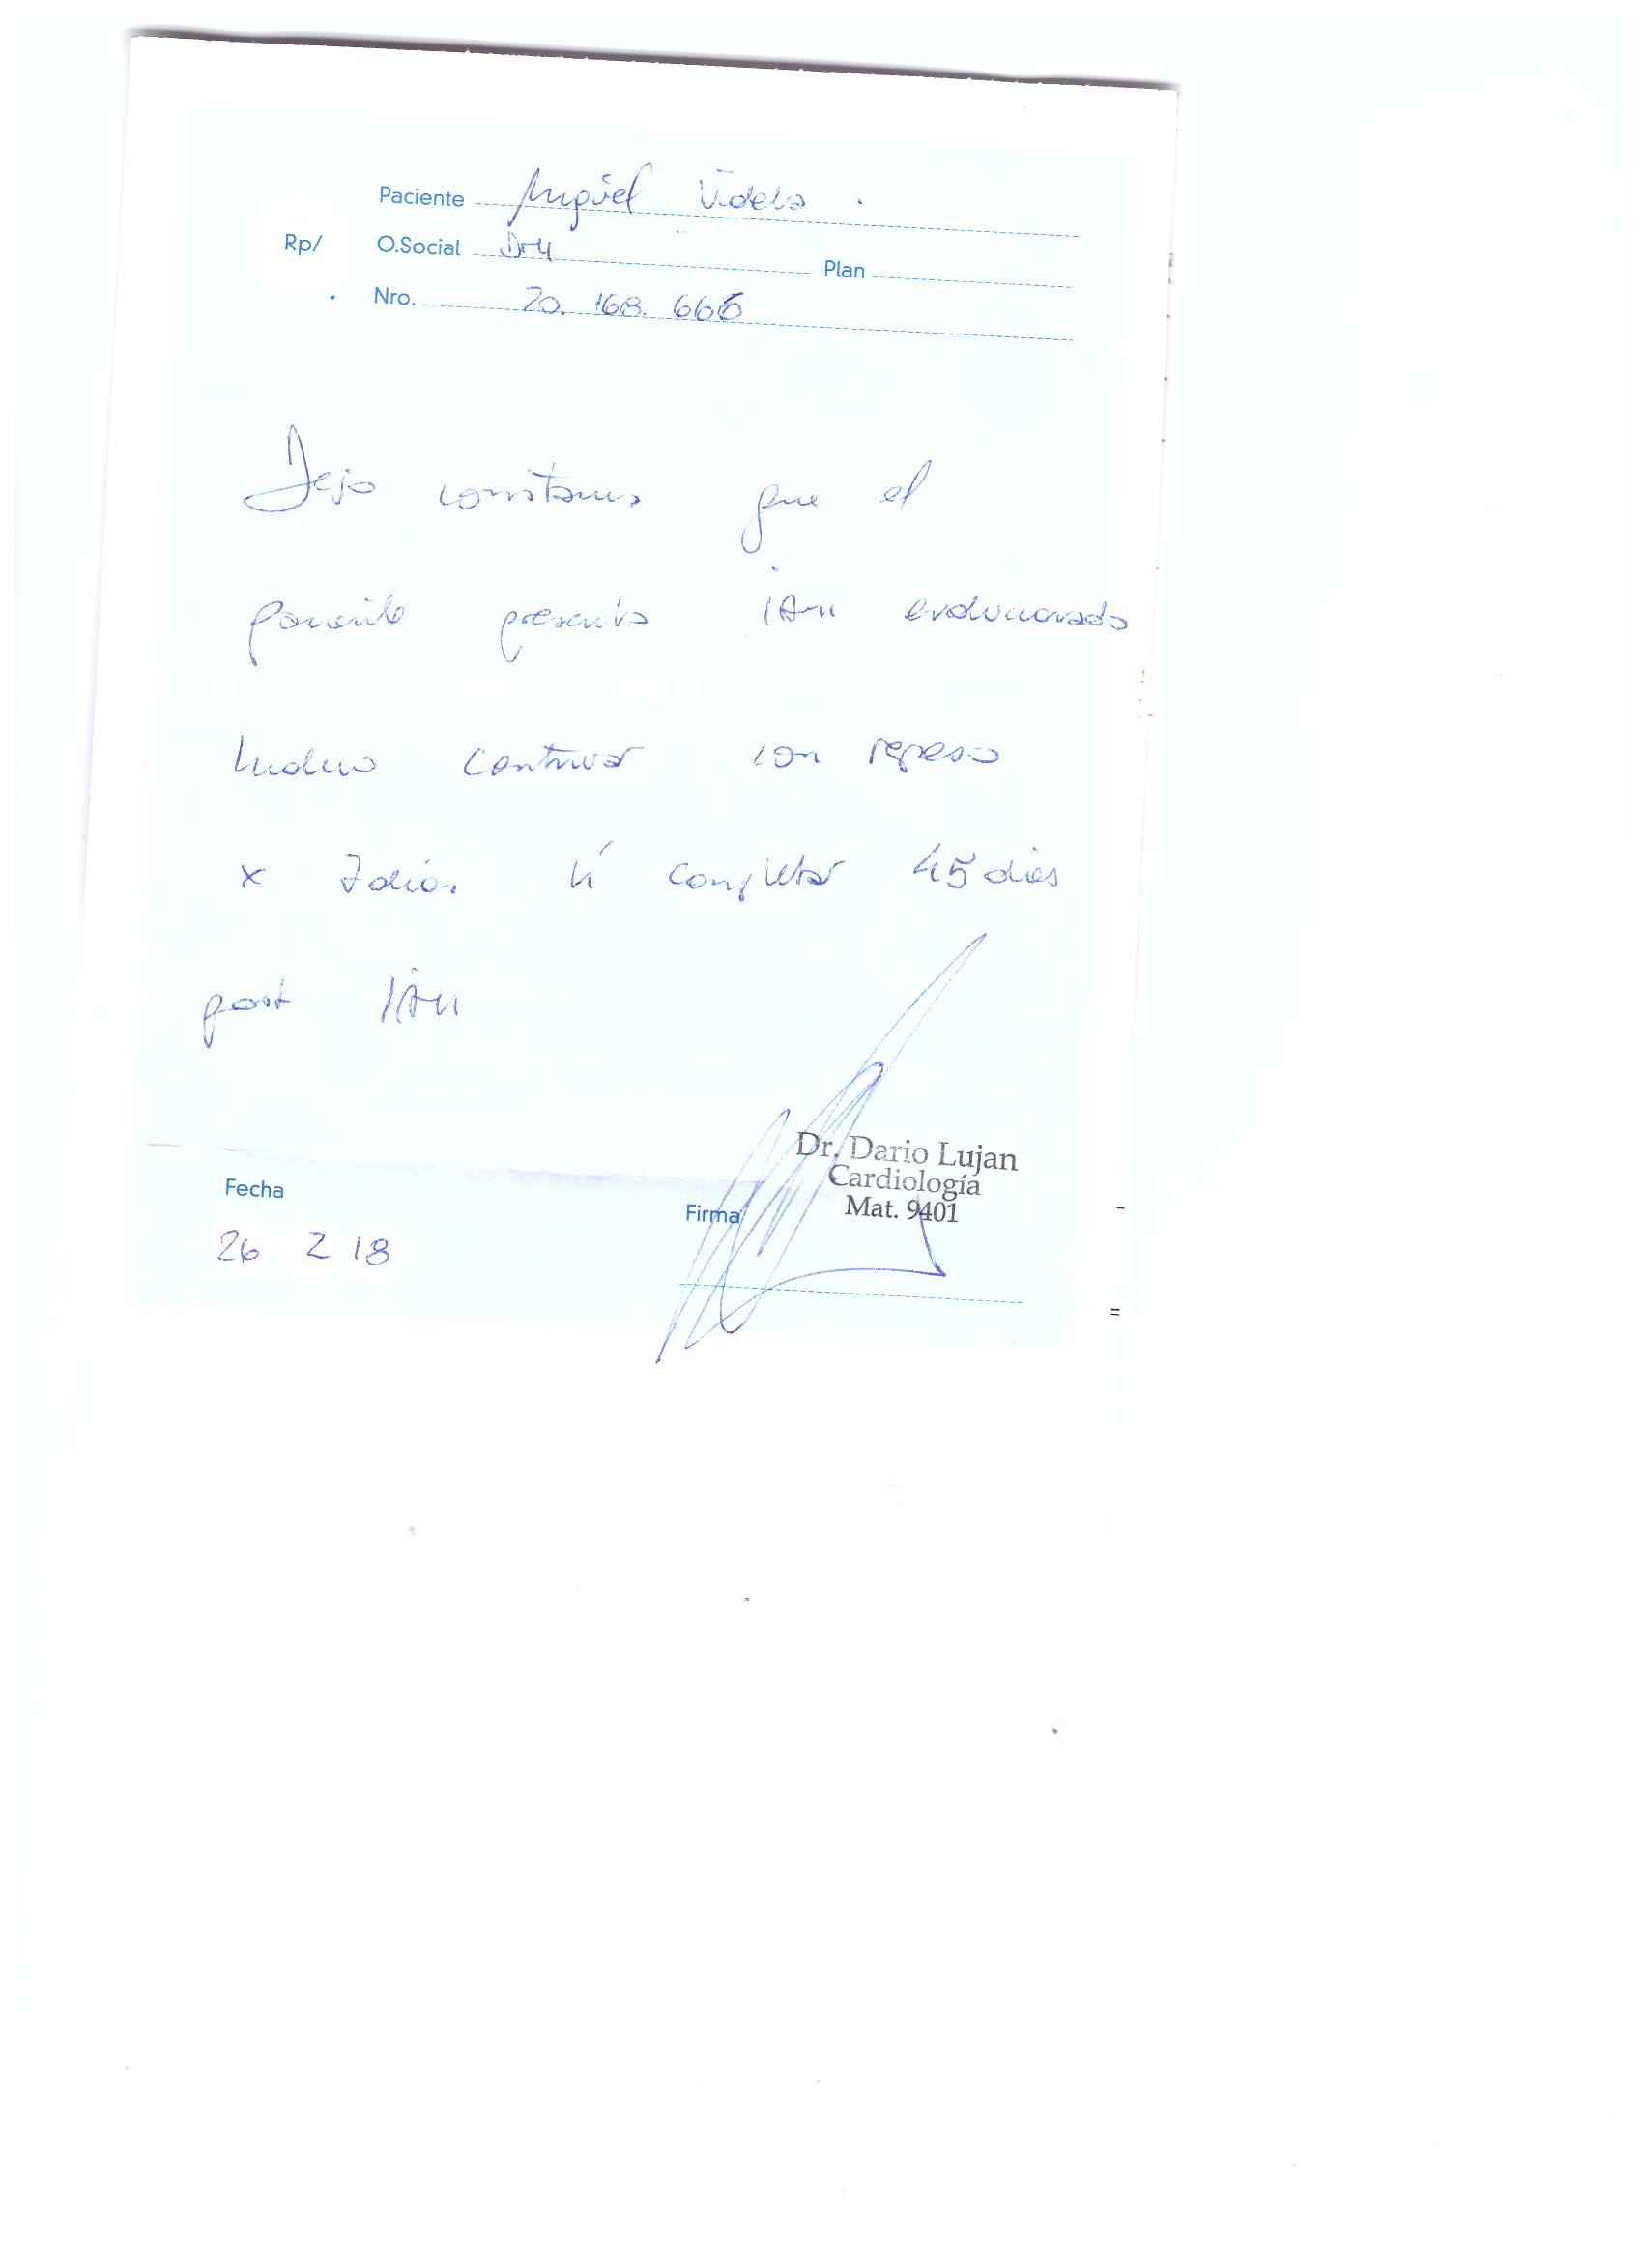 Paciente Miguel Videla .
Rp/ O.Social Plan
Nro. 20.168.666
Dejo constancia que el
paciente presenta IAM evolucionado
Indico continuar con reposo
x 7 días. h' completar 45 dias
post IAM
Dr. Dario Lujan
Cardiología
Mat. 9401
Fecha
Firma
26 2 18